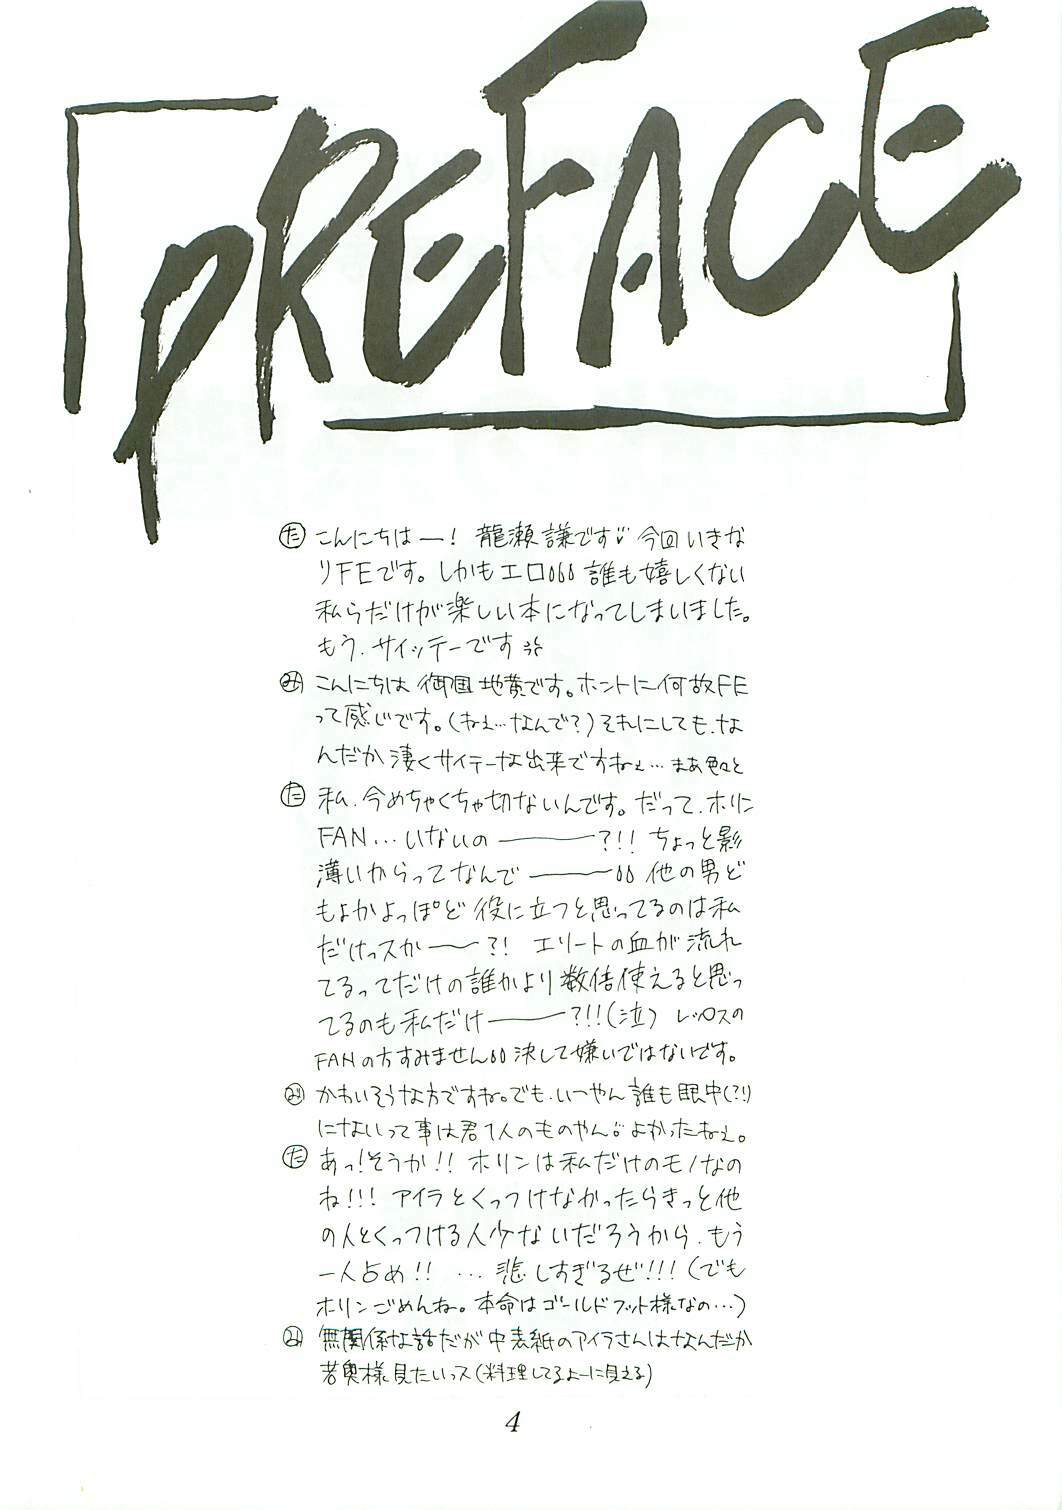 PREFACE
た こんにちはー! 龍瀬謙です 今回いきな
りFEです。しかもエロ 誰も嬉しくない
私らだけが楽しい本になってしまいました。
もう、サイッテーです
み こんにちは 御国地黄です。ホントに何故FE
って感じです。(ねェ…なんで?)それにしても、な
んだか凄くサイテーな出来ですねェ… まあ色々と
た 私、今めちゃくちゃ切ないんです。だって、ホリン
FAN…いないのーー?!! ちょっと影
薄いからってなんでーー 他の男ど
もよかよっぽど役に立つと思ってるのは私
だけっスかー?! エリートの血が流れ
てるってだけの誰かより数倍使えると思っ
てるのも私だけーー?!!(泣) レックスの
FANの方すみません 決して嫌いではないです。
み かわいそうな方ですね。でも、いーやん誰も眼中(?!)
にないって事は君1人のものやん よかったねェ。
た あっ!そうか!! ホリンは私だけのモノなの
ね!!! アイラとくっつけなかったらきっと他
の人とくっつける人少ないだろうから、もう
一人占め!! …悲しすぎるぜ!!!(でも
ホリンごめんね。本命はゴールドフット様なの…)
み 無関係な話だが中表紙のアイラさんはなんだか
若奥様見たいっス(料理してるよーに見える)
4